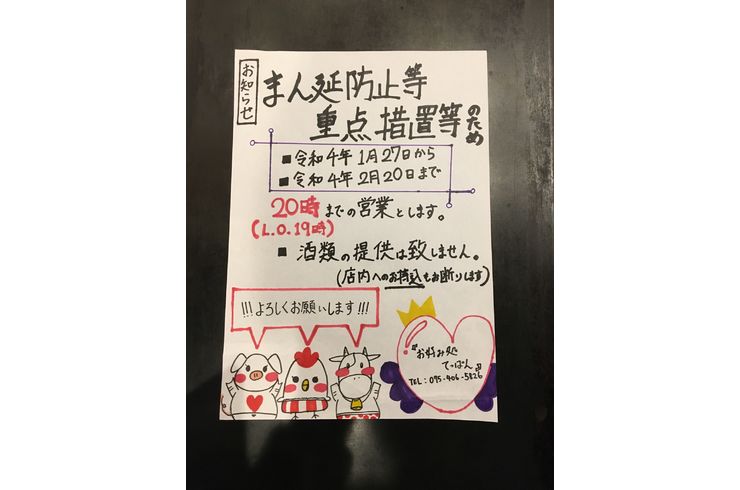 お知らせ
まん延防止等
重点措置等のため
■令和4年1月27日から
■令和4年2月20日まで
20時までの営業とします。
(L.O.19時)
■酒類の提供は致しません。
(店内へのお持込もお断りします)
!!!よろしくお願いします!!!
『お好み処
てっぱん』
TEL:095-406-5826